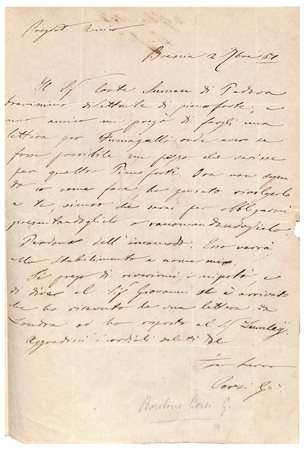 Pregiat Amico
Brescia 2 Xbre 61
Il Sig Conte di Padova
dilettante di pianoforte, e
mio amico mi pregò di fargli una
lettera per Fumagalli onde avere se
fosse possibile un pezzo che scrisse
per quattro Pianoforti. Ora non sapen
do io come fare ho pensato
a te, sicuro che vorrai per
presentandoglielo o raccomandandoglielo
Perdona dell'incomodo. Esso verrà
allo Stabilimento a nome mio
Ti prego di riverirmi i nipoti e
di dire al Sig Giovanni che è arrivato
che ho ricevuto la sua lettera da
Londra ed ho risposto al Sig Lumley
Aggradirai i cordiali saluti del
Tuo
Corsi G
Baritono Corsi G.